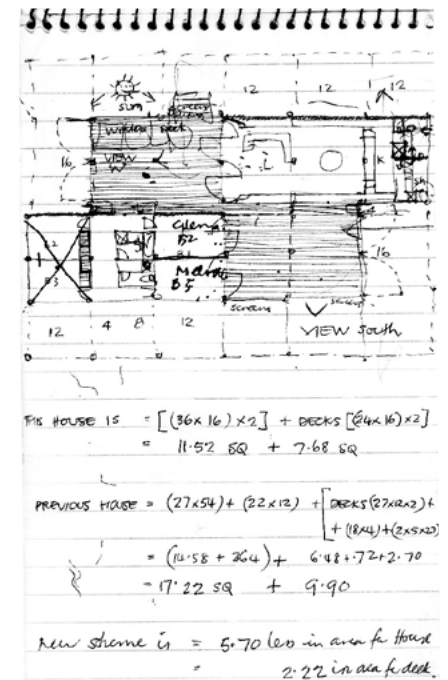 12 12 12
sun
window seat
VIEW
16
K
Glen
B2
B1
B3
B3
16
screens
screens
12 4 8 12
VIEW South
THIS HOUSE IS = [(36x16)x2] + DECKS [(24x16)x2]
= 11.52 SQ + 7.68 SQ
PREVIOUS HOUSE = (27x54)+(22x12) + [DECKS(27x12x2)+
+(18x4)+(2x5x27)
= (14.58 + 264) + 6.48+.72+2.70
= 17.22 SQ + 9.90
New scheme is = 5.70 less in area for House
= 2.22 in area for deck.